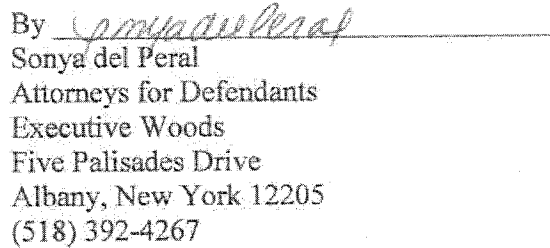 By Sonya del Peral
Sonya del Peral
Attorneys for Defendants
Executive Woods
Five Palisades Drive
Albany, New York 12205
(518) 392-4267